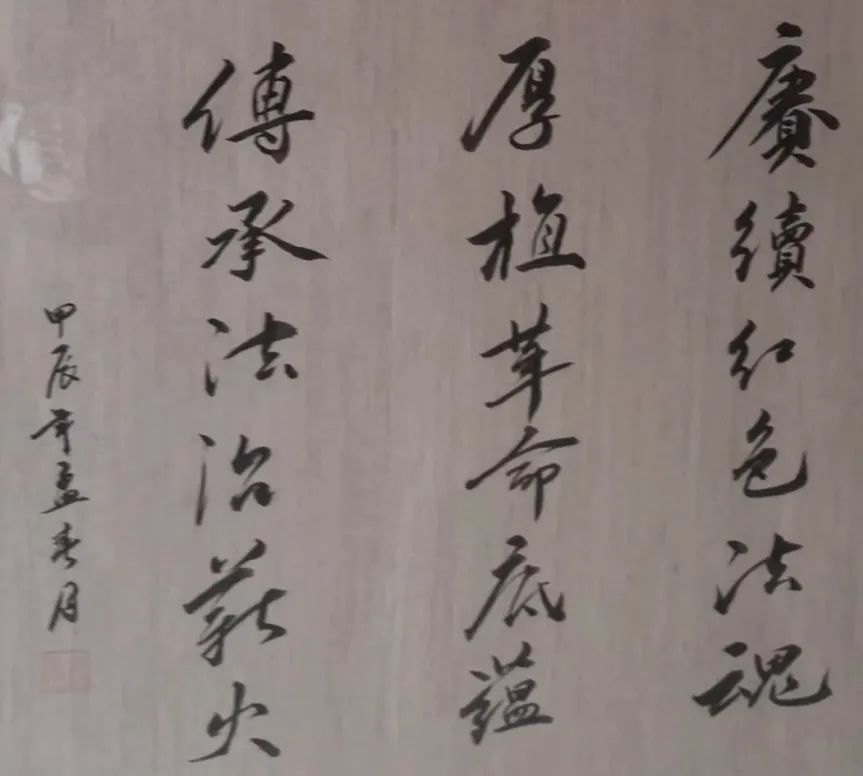 赓續红色法魂
厚植革命底蕴
傳承法治薪火
甲辰年孟春月